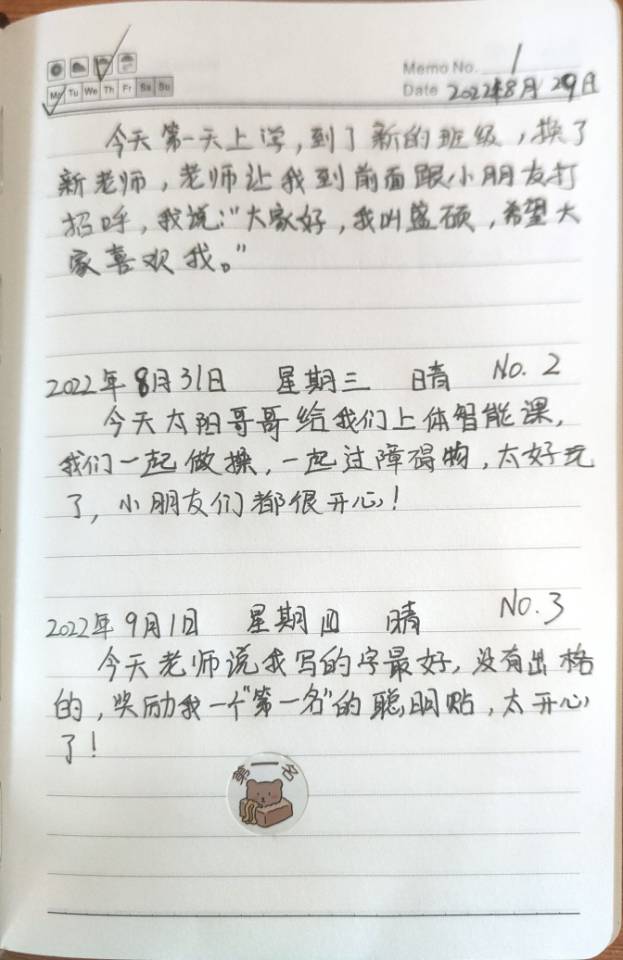 Memo No. 1
Mo Tu We Th Fr Sa Su
Date 2022年8月29日
今天第一天上学，到了新的班级，换了
新老师，老师让我到前面跟小朋友打
招呼，我说：“大家好，我叫盛硕，希望大
家喜欢我。”
2022年8月31日 星期三 晴 No.2
今天太阳哥哥给我们上体智能课，
我们一起做操，一起过障碍物，太好玩
了，小朋友们都很开心！
2022年9月1日 星期四 晴 No.3
今天老师说我写的字最好，没有出格
的，奖励我一个“第一名”的聪明贴，太开心
了！
第一名